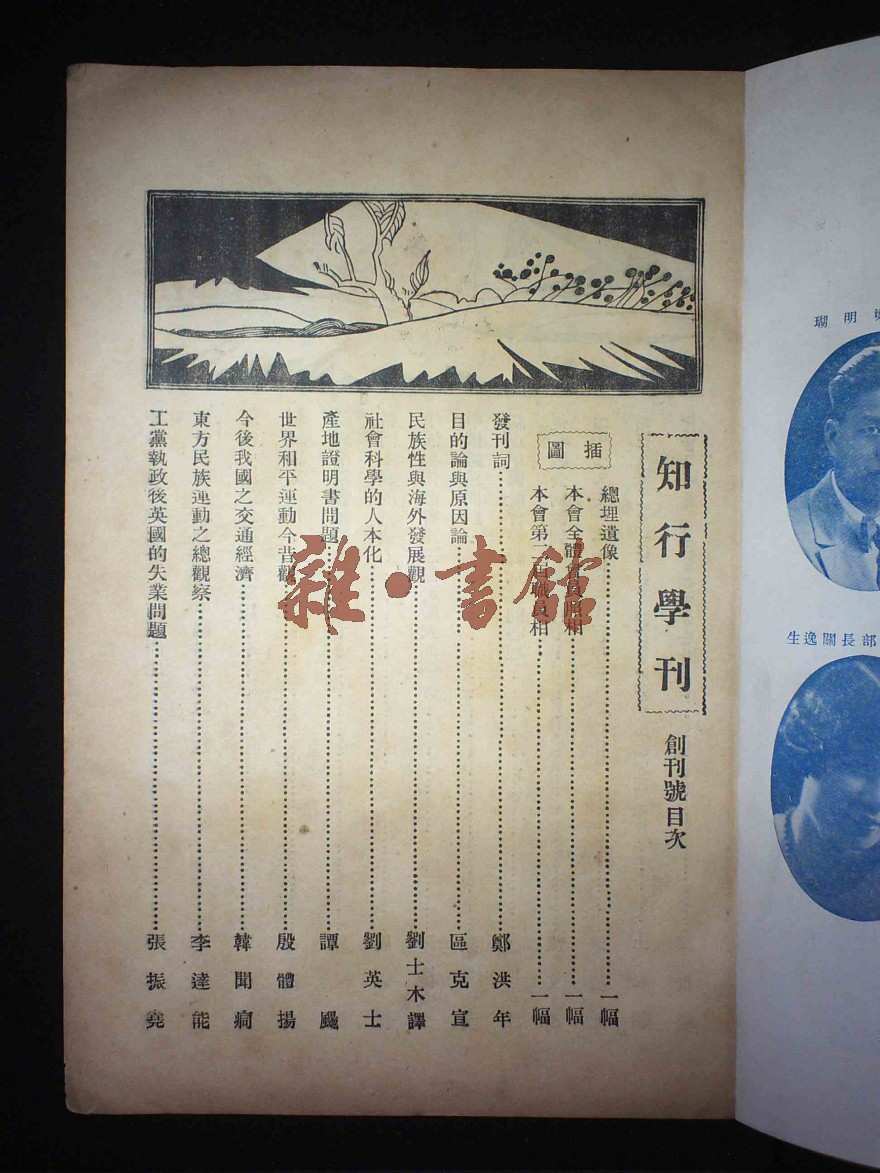 知行學刊
創刊號目次
插圖
總理遺像……一幅
本會全體會員照相……一幅
本會第一屆職員相……一幅
發刊詞……鄭洪年
目的論與原因論……區克宣
民族性與海外發展觀……劉士木譯
社會科學的人本化……劉英士
產地證明書問題……譚颺
世界和平運動今昔觀……殷體揚
今後我國之交通經濟……韓聞痌
東方民族運動之總觀察……李達能
工黨執政後英國的失業問題……張振堯
雜·書館
明瑚
部長關逸生